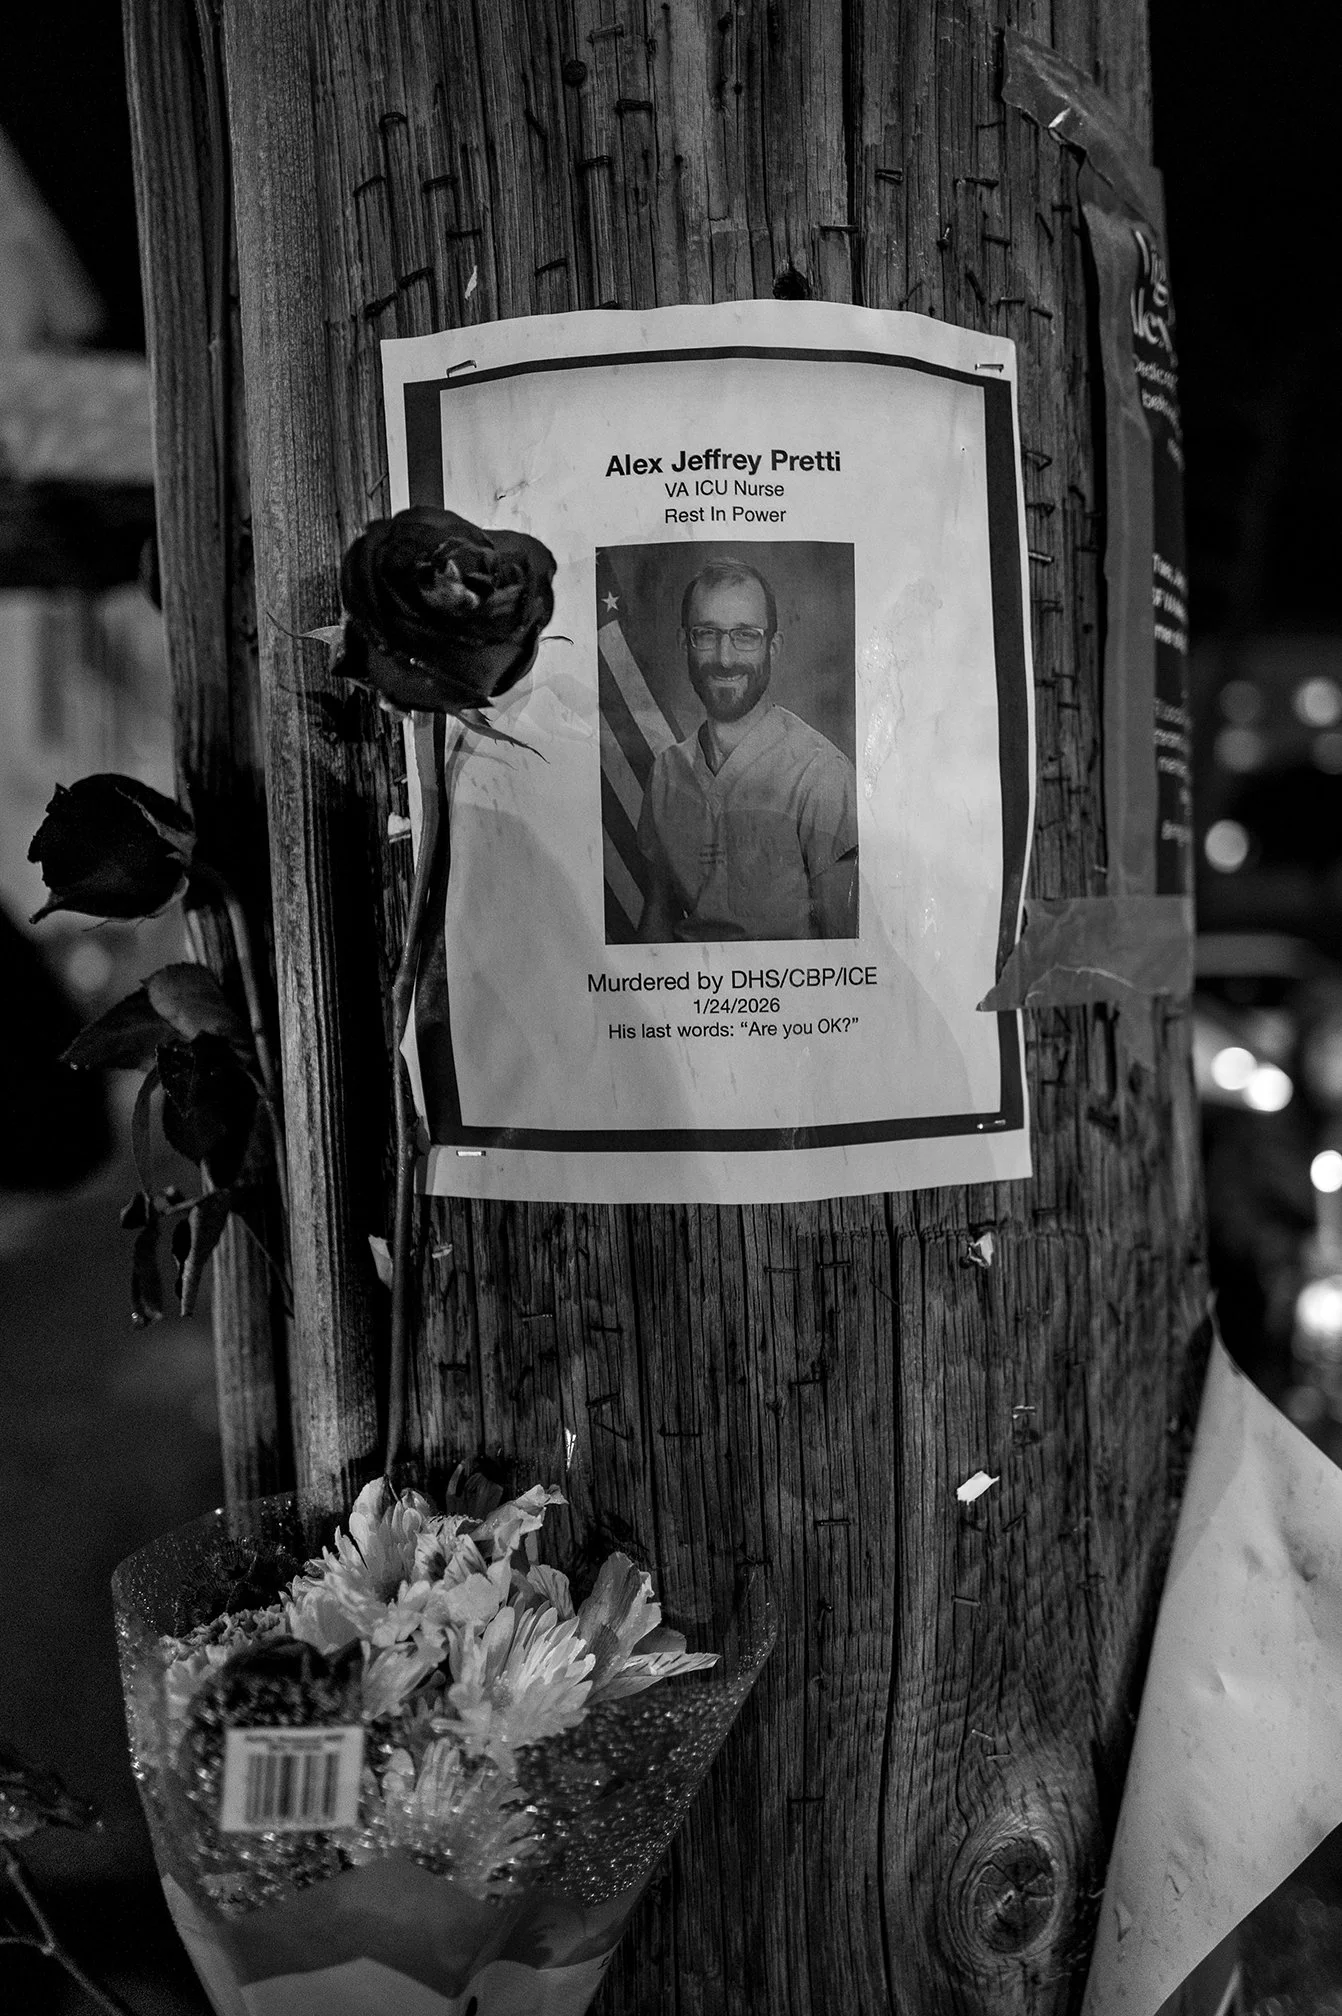 Alex Jeffrey Pretti
VA ICU Nurse
Rest In Power
Murdered by DHS/CBP/ICE
1/24/2026
His last words: “Are you OK?”